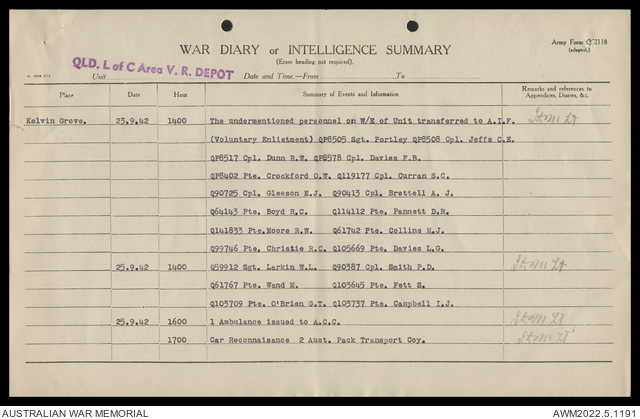 Army Form C. 2118
(adapted).
WAR DIARY or INTELLIGENCE SUMMARY
(Erase heading not required).
QLD. L of C Area V. R. DEPOT
Unit Date and Time.—From To
Place Date Hour Summary of Events and Information Remarks and references to Appendices, Diaries, &c.
Kelvin Grove. 23.9.42 1400 The undermentioned personnel on W/E of Unit transferred to A.I.F.
(Voluntary Enlistment) QP8505 Sgt. Portley QP8508 Cpl. Jeffs C.E.
QP8517 Cpl. Dunn R.W. QP8578 Cpl. Davies F.B.
QP8402 Pte. Crockford O.W. Q119177 Cpl. Curran S.C.
Q90725 Cpl. Gleeson E.J. Q90413 Cpl. Brettell A. J.
Q64143 Pte. Boyd R.C. Q114112 Pte. Pannett D.R.
Q141833 Pte.Moore R.W. Q61742 Pte. Collins M.J.
Q99746 Pte. Christie R.C. Q105669 Pte. Davies L.G.
25.9.42 1400 Q59912 Sgt. Larkin W.L. Q90387 Cpl. Smith P.D.
Q61767 Pte. Wand M. Q103645 Pte. Fett S.
Q103709 Pte. O'Brien G.T. Q103737 Pte. Campbell I.J.
25.9.42 1600 1 Ambulance issued to A.C.C.
1700 Car Reconnaisance 2 Aust. Pack Transport Coy.
AUSTRALIAN WAR MEMORIAL AWM2022.5.1191